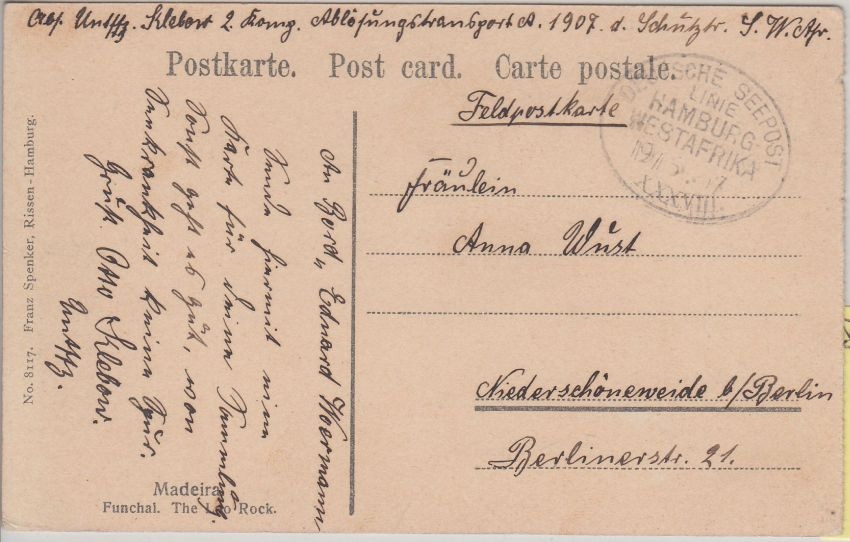 Abs. Untffz. Klebow 2. Komp. Ablösungstransport A. 1907 d. Schutztr. S. W. Afr.
Postkarte. Post card. Carte postale.
Feldpostkarte
DEUTSCHE SEEPOST
LINIE
HAMBURG-
WESTAFRIKA
XXXVIII.
Fräulein
Anna Wust
Niederschöneweide b/Berlin
Berlinerstr. 21.
An Bord „Eduard Woermann
Sende hiermit eine
Karte für deine Sammlung.
Sonst geht es gut, von
Seekrankheit keine Spur.
Gruß Otto Klebow.
Untffz.
No. 8117. Franz Spenker, Rissen-Hamburg.
Madeira
Funchal. The Loo Rock.